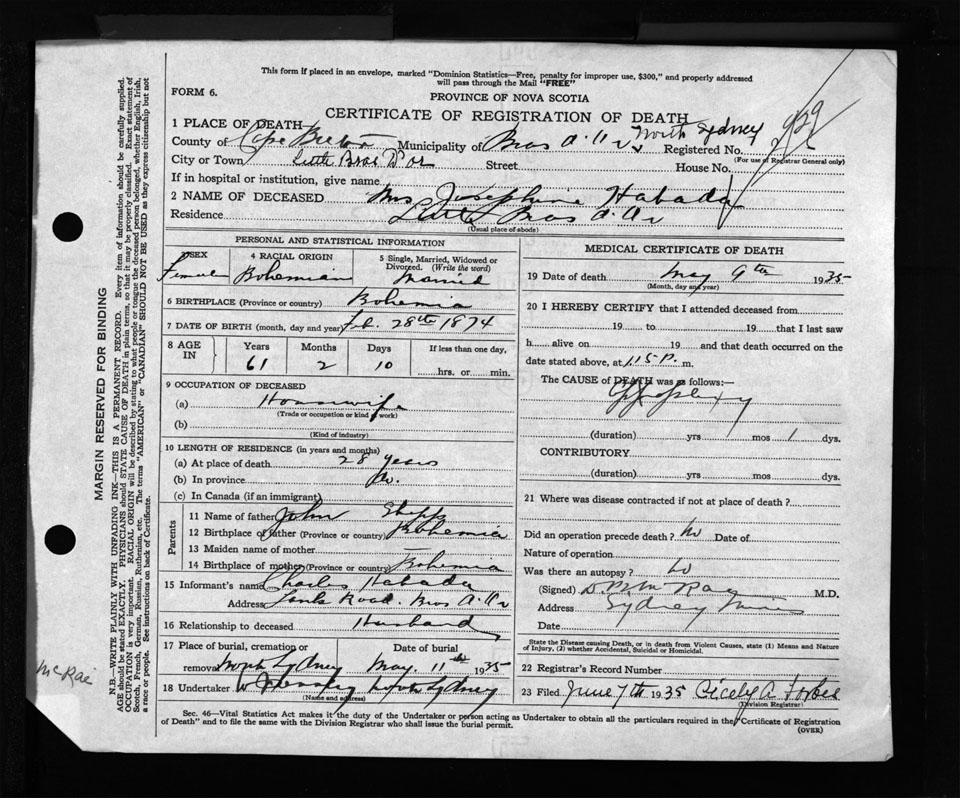 This form if placed in an envelope, marked "Dominion Statistics—Free, penalty for improper use, $300," and properly addressed
will pass through the Mail "FREE"
FORM 6.
PROVINCE OF NOVA SCOTIA
CERTIFICATE OF REGISTRATION OF DEATH
1 PLACE OF DEATH
County of Cape Breton Municipality of Bras d'Or North Sydney Registered No.
(For use of Registrar General only)
City or Town Little Bras D'or Street House No.
If in hospital or institution, give name
2 NAME OF DECEASED Mrs Josephine Habada
Residence Little Bras d'Or
(Usual place of abode)
PERSONAL AND STATISTICAL INFORMATION
3 SEX 4 RACIAL ORIGIN 5 Single, Married, Widowed or
Divorced. (Write the word)
Female Bohemian Married
6 BIRTHPLACE (Province or country) Bohemia
7 DATE OF BIRTH (month, day and year) Feb. 28th 1874
8 AGE IN Years Months Days If less than one day,
61 2 10 hrs. or min.
9 OCCUPATION OF DECEASED
(a) Housewife
(Trade or occupation or kind of work)
(b)
(Kind of industry)
10 LENGTH OF RESIDENCE (in years and months)
(a) At place of death 28 years
(b) In province Do.
(c) In Canada (if an immigrant)
Parents
11 Name of father John
12 Birthplace of father (Province or country) Bohemia
13 Maiden name of mother
14 Birthplace of mother (Province or country) Bohemia
15 Informant's name Charles Habada
Address Road. Bras d'Or
16 Relationship to deceased Husband
17 Place of burial, cremation or Date of burial
removal North Sydney May. 11th 1935
18 Undertaker North Sydney
(Name and address)
MEDICAL CERTIFICATE OF DEATH
19 Date of death May 9th 1935
(Month, day and year)
20 I HEREBY CERTIFY that I attended deceased from
19 to 19 that I last saw
h alive on 19 and that death occurred on the
date stated above, at 1.15 P. m.
The CAUSE of DEATH was as follows:—
Apoplexy
(duration) yrs mos 1 dys.
CONTRIBUTORY
(duration) yrs. mos. dys.
21 Where was disease contracted if not at place of death?
Did an operation precede death? No Date of
Nature of operation
Was there an autopsy? No
(Signed) M.D.
Address Sydney Mines
Date
State the Disease causing Death, or in death from Violent Causes, state (1) Means and Nature
of Injury, (2) whether Accidental, Suicidal or Homicidal.
22 Registrar's Record Number
23 Filed June 7th 1935 Cicely A. Forbes
(Division Registrar)
Sec. 46—Vital Statistics Act makes it the duty of the Undertaker or person acting as Undertaker to obtain all the particulars required in the "Certificate of Registration
of Death" and to file the same with the Division Registrar who shall issue the burial permit.
(OVER)
MARGIN RESERVED FOR BINDING
N.B.—WRITE PLAINLY WITH UNFADING INK—THIS IS A PERMANENT RECORD. Every item of information should be carefully supplied.
AGE should be stated EXACTLY. PHYSICIANS should STATE CAUSE OF DEATH in plain terms, so that it may be properly classified. Exact statement of
OCCUPATION is very important. RACIAL ORIGIN will be described by stating to what people or tongue the deceased person belonged, whether English, Irish,
Scotch, French, German, Russian, Ruthenian, etc. The terms "AMERICAN" or "CANADIAN" SHOULD NOT BE USED as they express citizenship but not
a race or people. See instructions on back of Certificate.
McRae